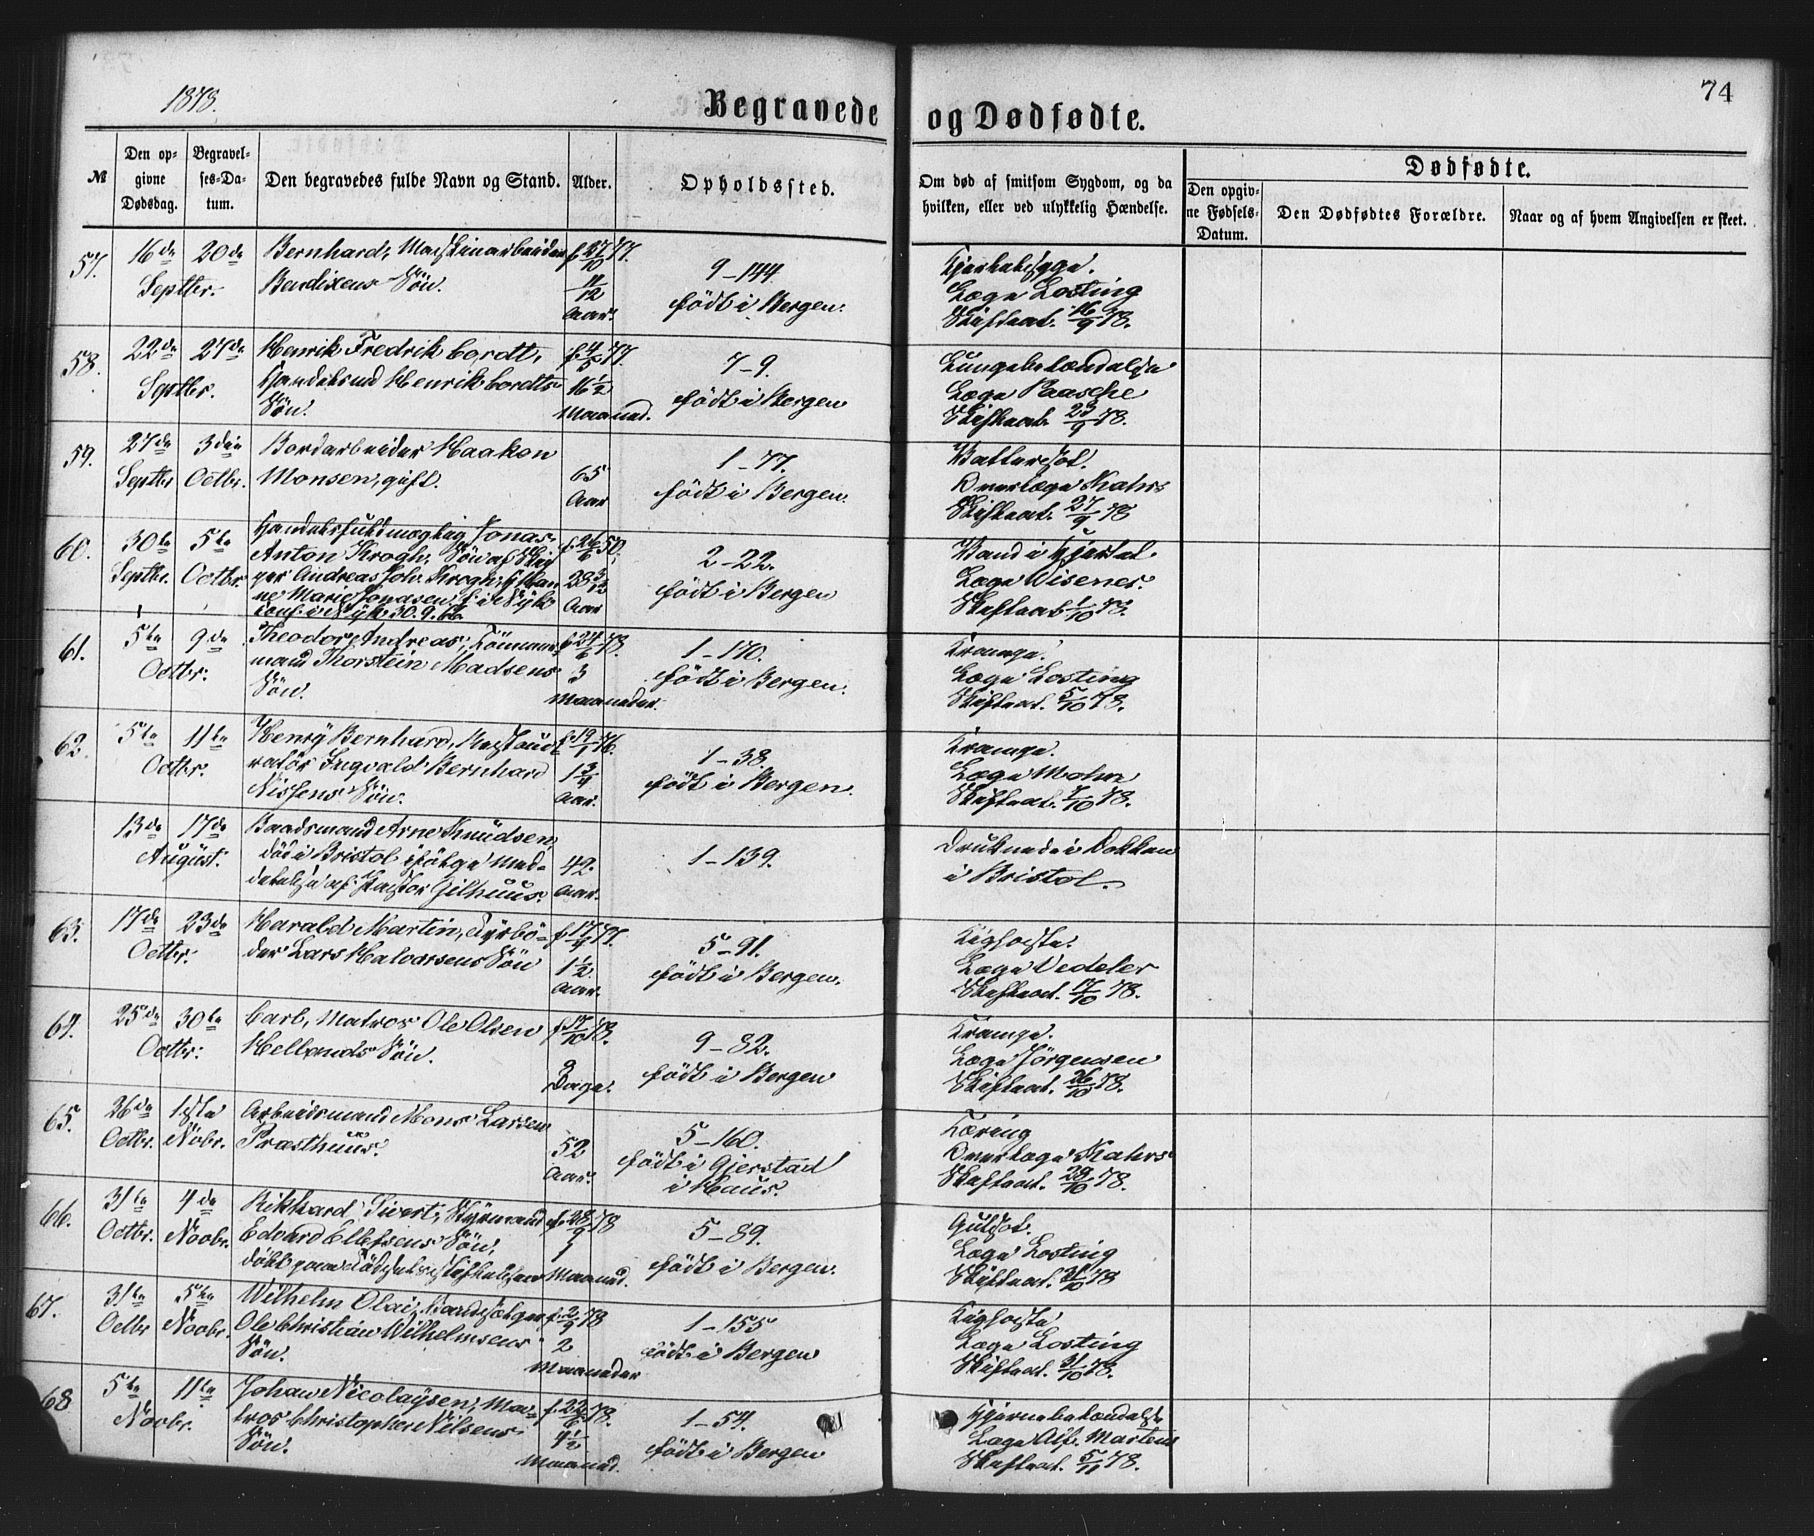 1878.
Begravede og Dødfødte.
74
№
Den op-
givne
Dødsdag.
Begravel-
ses-Da-
tum.
Den begravedes fulde Navn og Stand.
Alder.
Opholdssted.
Om død af smitsom Sygdom, og da
hvilken, eller ved ulykkelig Hændelse.
Dødfødte.
Den opgiv-
ne Fødsels-
Datum.
Den Dødfødtes Forældre.
Naar og af hvem Angivelsen er skeet.
57. 16de 20de Bernhard, Maskinarbeider f. 27/10 77.
Septbr. Bendixens Søn. 11/12 Aar.
9-144.
født i Bergen.
Læge Losting
Skiftaat. 16/9 78.
58. 22de 27de Henrik Fredrik Cordt, f. 4/5 77.
Septbr. Henrik Cordts
Søn. 16 1/2 Maaned.
7-9.
født i Bergen
Lungebetændelse
Læge Paasche
Skiftaat. 23/9 78.
59. 27de 3die Bordarbeider Haakon
Septbr Octbr. Monsen, gift. 65 Aar
1-77.
født i Bergen.
Vattersot.
Overlæge Kahrs
Skiftaat. 27/9 78
60. 30te 5te Handelsfuldmægtig Jonas
Septbr. Octbr. Anton Krogh, Søn af
Andreas Joh. Krogh
Marie Jondsen, f. i
conf. i 30.9.66.
f. 26/6 50,
28 3/12 Aar
2-22.
født i Bergen
Vand i Hjertet.
Læge Wisenes.
Skiftaat. 1/10 78.
61. 5te 9de Theodor Andreas, Tömmer-
Octbr. mand Thorstein Madsens
Søn.
f. 24/6 78.
3 Maaneder.
1-170.
født i Bergen.
Krampe.
Læge Losting
Skiftaat. 5/10 78.
62. 5te 11te Henry Bernhard,
Octbr. Ingvald Bernhard
Nissens Søn.
f. 19/1 76.
1 3/4 Aar.
1-38.
født i Bergen.
Krampe.
Læge Mohn
Skiftaat. 7/10 78.
13de 17de Baadsmand Arne Knudsen,
August. död i Bristol ifölge Med-
delelse af Pastor Gilhuus.
42 Aar.
1-139.
Druknede i Dokken
i Bristol.
63. 17de 23de Harald Martin, Fyrbö-
Octbr. der Lars Halvorsens Søn
f. 17/4 77.
1 1/2 Aar.
5-91.
født i Bergen.
Kighoste.
Læge Vedeler
Skiftaat. 17/10 78.
64. 25de 30te Carl, Matros Ole Olsen
Octbr. Hellands Søn.
f. 17/10 78.
Dage.
9-82.
født i Bergen
Krampe.
Læge Jörgensen
Skiftaat. 26/10 78.
65. 26de 1ste Arbeidsmand Mons Larsen
Octbr. Nobr. Præsthuus.
52 Aar.
5-160.
født i Gjerstad
i Haus.
Tæring
Overlæge Kahrs
Skiftaat. 29/10 78.
66. 31te 4de Rikhard Sivert, Styrmand
Octbr. Novbr. Edvard Ellefsens Søn,
döbt
f. 28/9 78
1 Maaned.
5-89.
født i Bergen.
Gulsot.
Læge Losting
Skiftaat. 31/10 78
67. 31te 5te Wilhelm Olai,
Octbr Novbr. Ole Christian Wilhelmsens
Søn.
f. 2/9 78
2 Maaneder
1-155
født i Bergen
Kighoste
Læge Losting
Skiftaat. 31/10 78.
68 5te 11te Johan Nicolaysen, Ma-
Novbr. tros Christopher Nilsens
Søn.
f. 22/6 78.
4 1/2 Maaned.
1-54.
født i Bergen
Hjernebetændelse
Læge Alf. Martens
Skiftaat. 5/11 78.